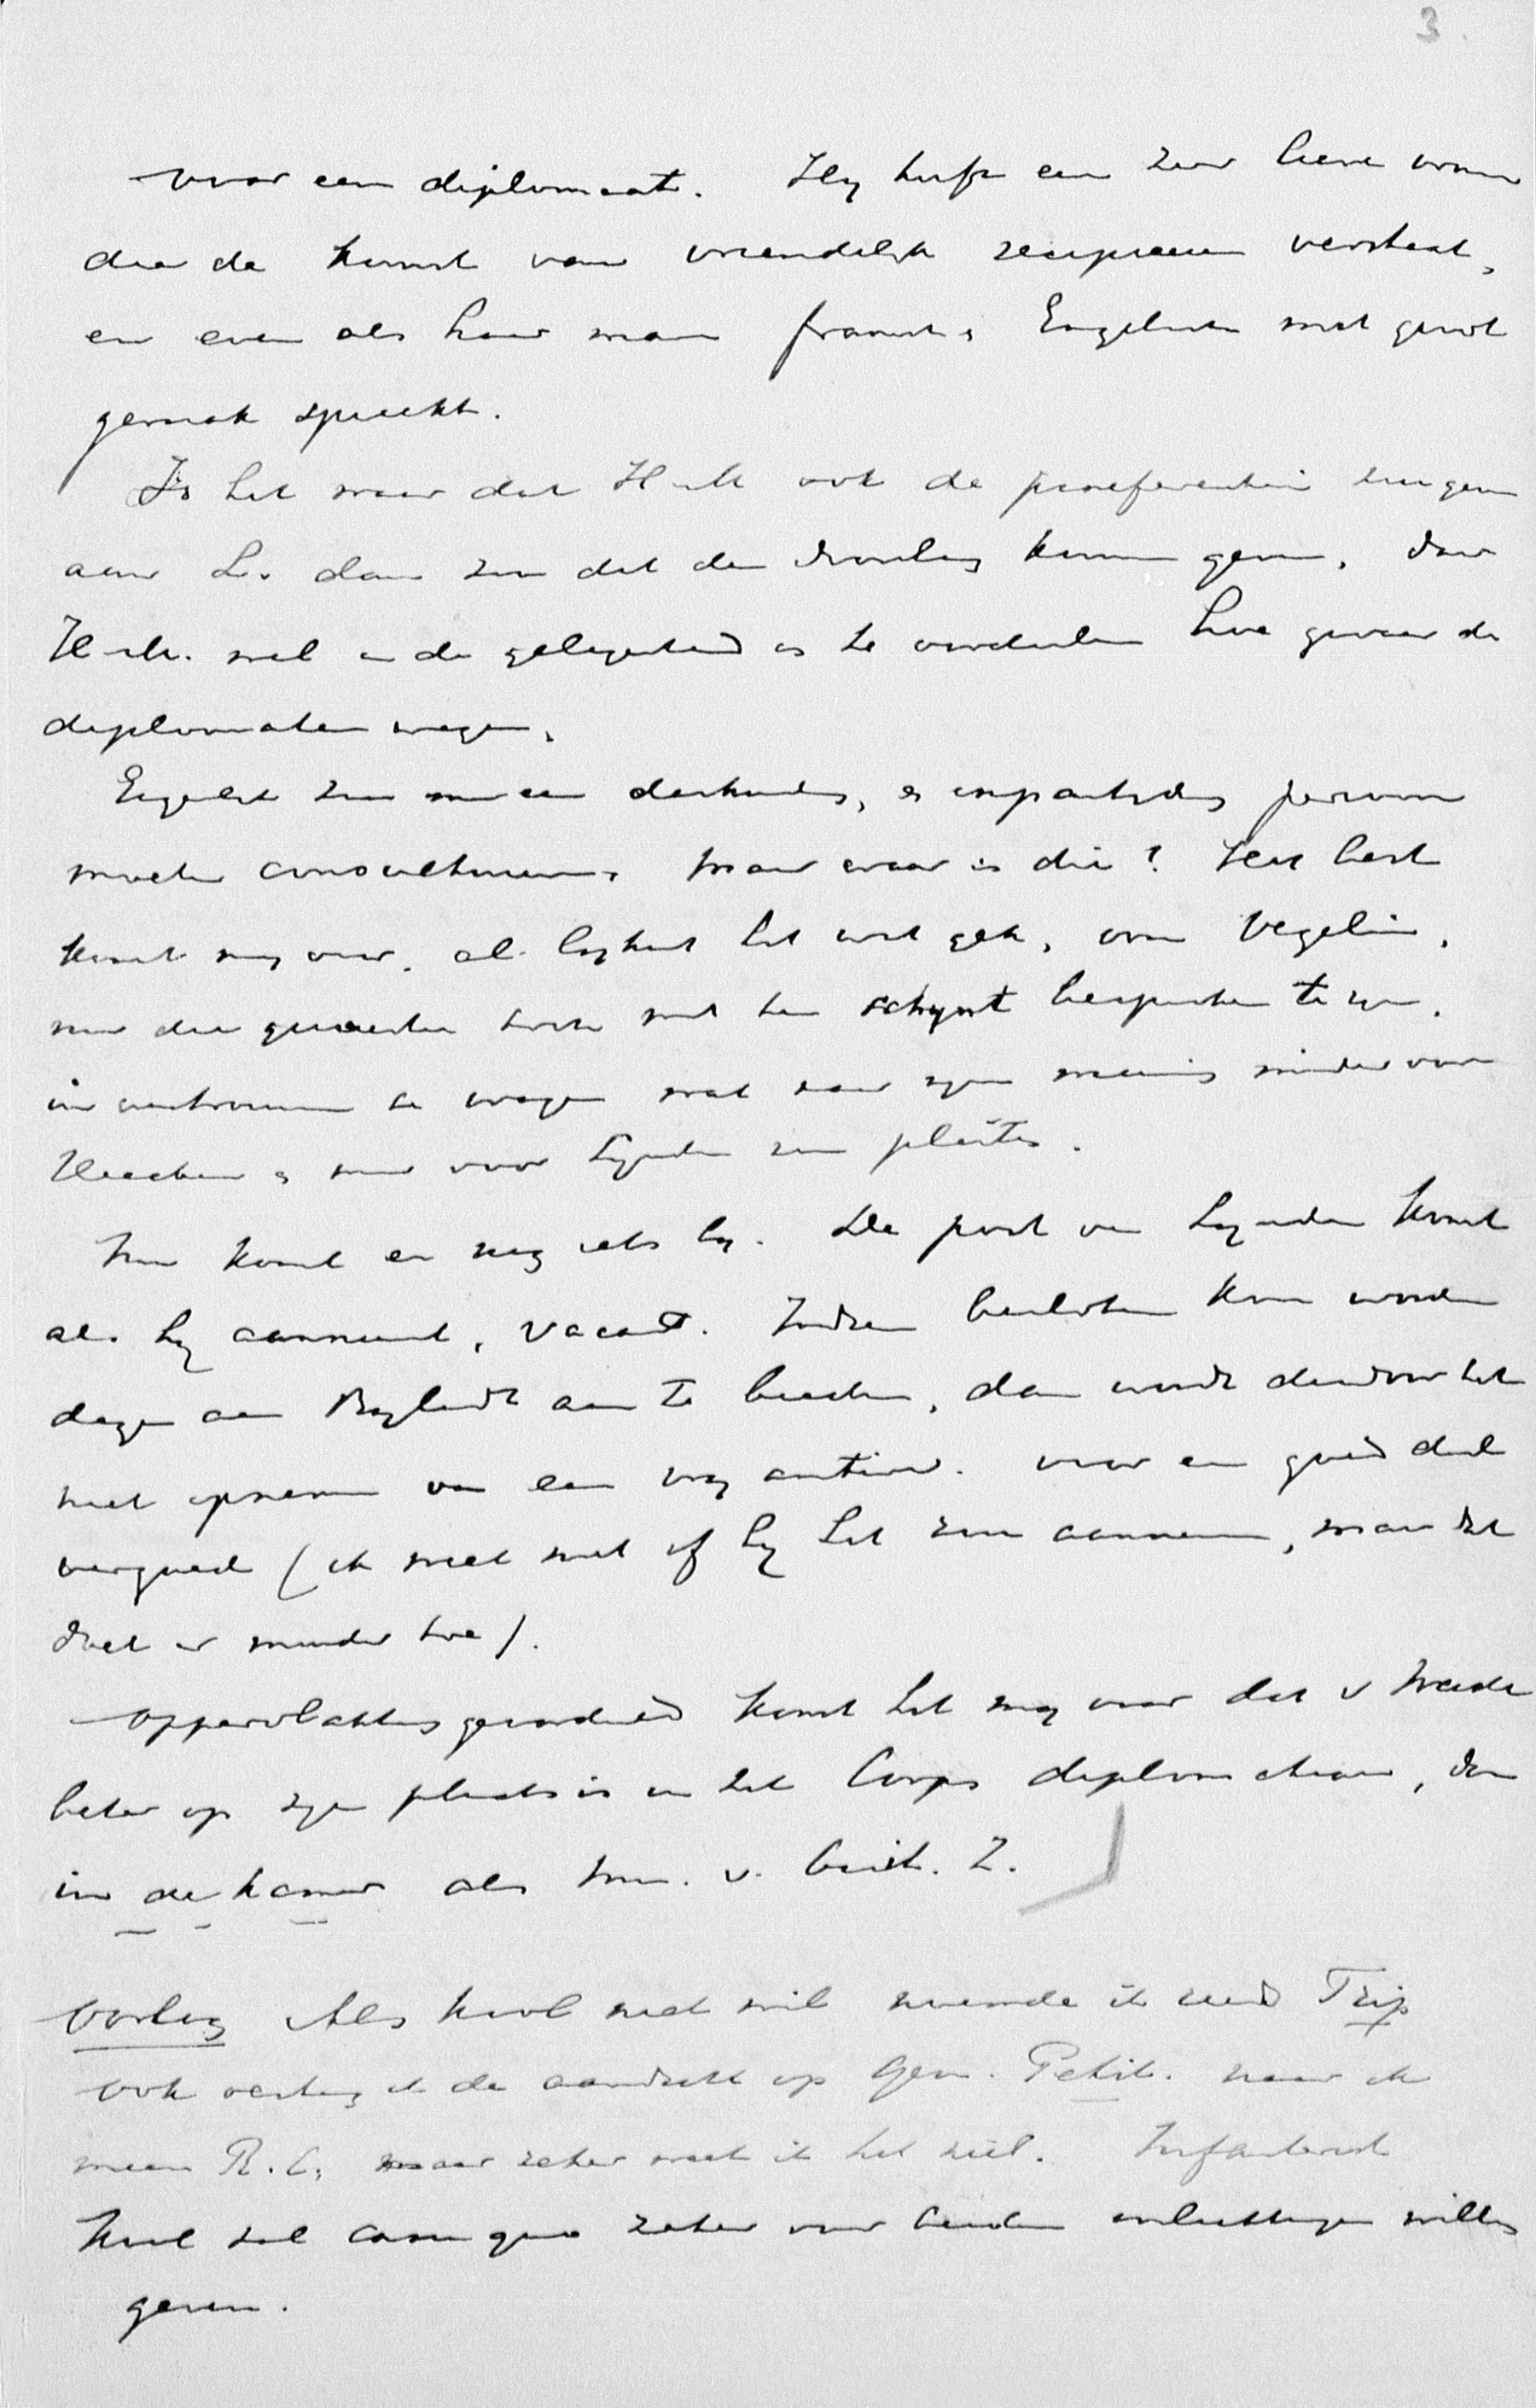 3.
voor een diplomaat. Hij heeft een zeer lieve vrouw
die de kunst van vriendelijk recipieeren verstaat,
en even als haar man fransch & Engelsch met groot
gemak spreekt.
Is het waar dat H.M. ook de preferentie zou geven
aan L. dan zou dat den doorslag kunnen geven, daar
H.M. wel in de gelegenheid is te oordeelen hoe zwaar de
diplomaten wegen.
Eigenlijk zou men een deskundig, & onpartijdig persoon
moeten consulteeren, maar waar is die? Het best
komt mij voor, al lijkt het wat gek, om Vegelin,
nu die gemeente toch met hem schijnt besproken te zijn,
in vertrouwen te vragen wat naar zijn meening minder voor
Heeckeren & meer voor Lynden zou pleiten.
Nu komt er nog iets bij. De post van Lynden komt
als hij aanneemt, vacant. Indien besloten kon worden
deze aan Bylandt aan te bieden, dan wordt daardoor het
niet opnemen van een vrij antirev. voor een goed deel
vergoed (ik weet niet of hij het zou aannemen, maar dat
doet er minder toe).
Oppervlakkig geoordeeld komt het mij voor dat v Weede
beter op zijn plaats is in het Corps diplomatique, dan
in de kamer als Min. v. Buit. Z.
Oorlog Als Kool niet wil noemde ik reeds Trip
Ook vestig ik de aandacht op Gen. Petit. naar ik
meen R.C, maar zeker weet ik het niet. Infanterist
Kool zal casu quo zeker over beiden inlichtingen willen
geven.